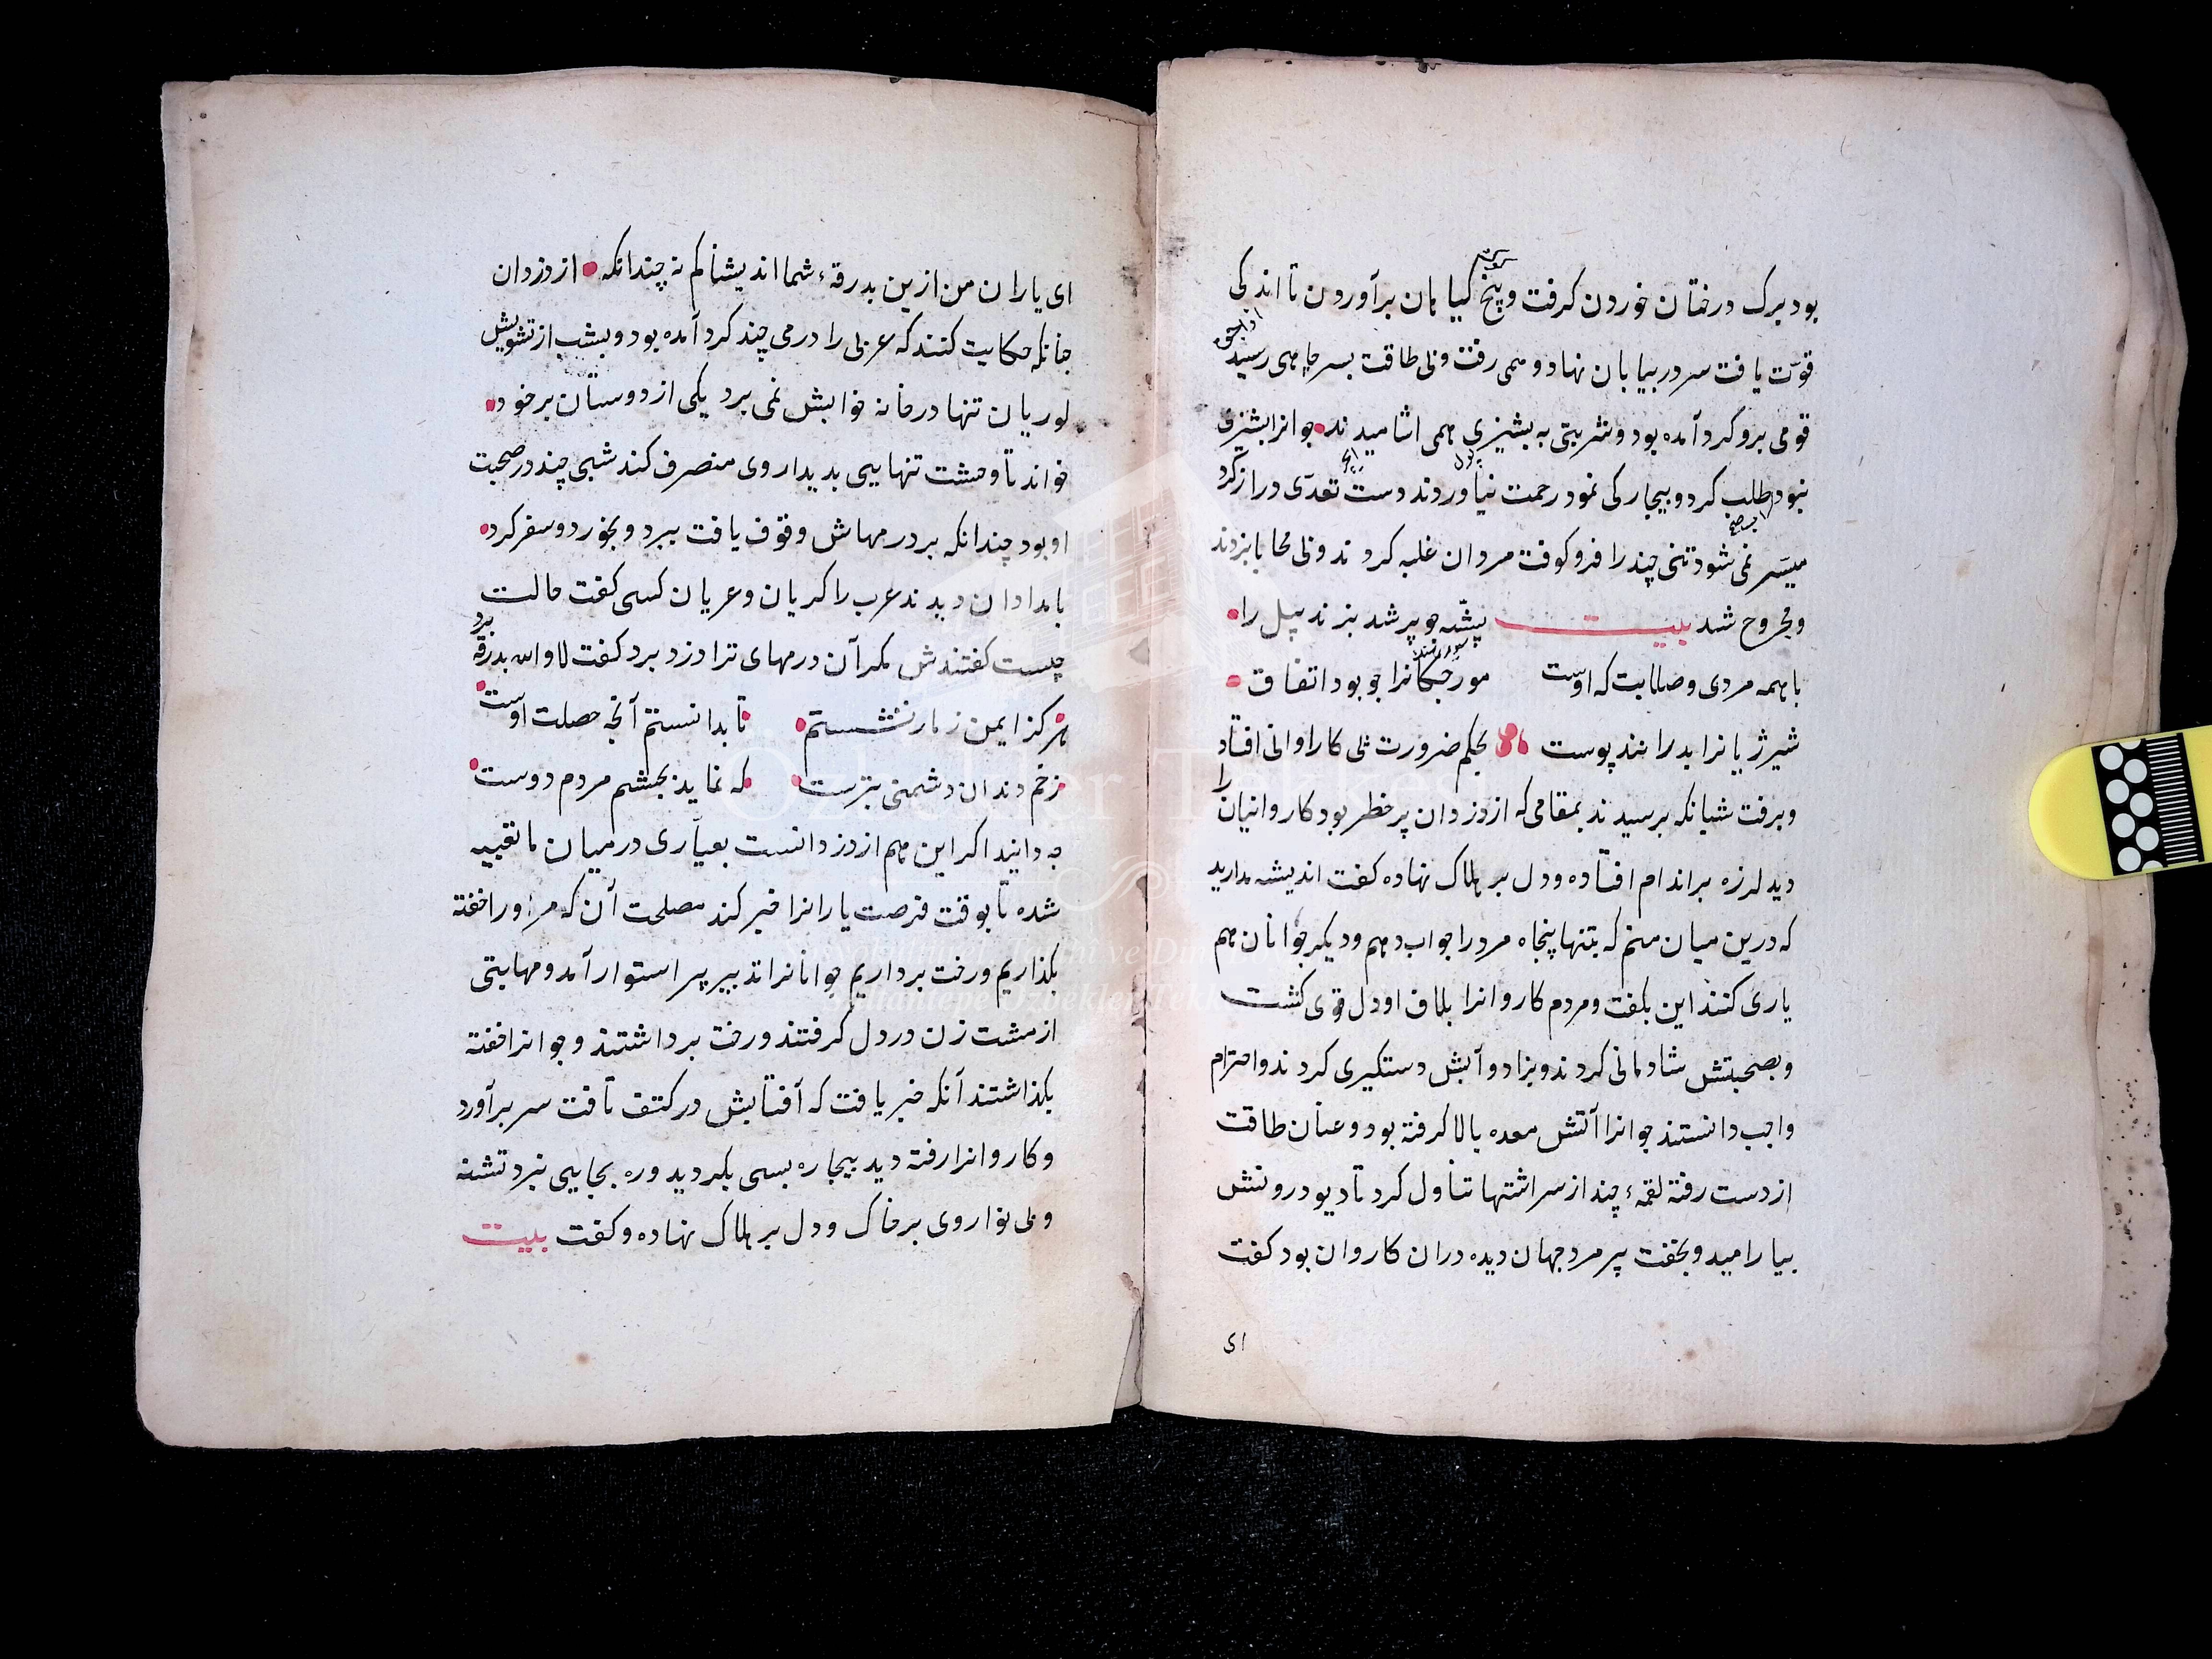 بود برک درختان خوردن کرفت و بیخ کیاهان برآوردن تا اندکی
قوّت یافت سر در بیابان نهاد و همی رفت و بی طاقت بسر چاهی رسید
قومی برو کرد آمده بود و شربتی به پشیزی همی اشامیدند جوانرا پشیزی
نبود طلب کرد و بیچارکی نمود رحمت نیاوردند دست تعدّی دراز کرد
میسّر نمی شود تنی چند را فرو کوفت مردان غلبه کردند و بی محابا بزدند
و مجروح شد بیت پشّه چو پر شد بزند پیل را
با همه مردی و صلابت که اوست مورچکانرا چو بود اتفاق
شیر ژیانرا بدرانند پوست بحکم ضرورت پی کاراوانی افتاد
و برفت شبانکه برسیدند بمقامی که از دزدان پر خطر بود کاروانیان را
دید لرزه بر اندام افتاده و دل بر هلاک نهاده کفت اندیشه مدارید
که درین میان منم که بتنها پنجاه مرد را جواب دهم و دیکر جوانان هم
یاری کنند این بکفت و مردم کاروانرا بلاف او دل قوی کشت
و بصحبتش شادمانی کردند و بزاد و آبش دستکیری کردند و احترام
واجب دانستند جوانرا آتش معده بالا کرفته بود و عنان طاقت
از دست رفته لقمهٔ چند از سر اشتها تناول کرد تا دیو درونش
بیارامید و بخفت پیر مرد جهان دیده دران کاروان بود کفت
ای
ای یاران من ازین بدرقهٔ شما اندیشناکم نه چندانکه از دزدان
چنانکه حکایت کنند که عربی را درمی چند کرد آمده بود و بشب از تشویش
لوریان تنها در خانه خوابش نمی برد یکی از دوستان بر خود
خواند تا وحشت تنهایی بدیدار وی منصرف کند شبی چند در صحبت
او بود چندانکه بر درمهاش وقوف یافت ببرد و بخورد و سفر کرد
بامدادان دیدند عرب را کریان و عریان کسی کفت حالت
چیست کفتندش مکر آن درمهای ترا دزد برد کفت لا والله بدرقه برد
هرکز ایمن ز مار ننشستم تا بدانستم آنچه خصلت اوست
زخم دندان دشمنی بترست که نماید بچشم مردم دوست
چه دانید اکر این هم از دزدانست بعیاری در میان ما تعبیه
شده تا بوقت فرصت یارانرا خبر کند مصلحت آن که مر اورا خفته
بکذاریم و رخت برداریم جوانانرا تدبیر پیر استوار آمد و مهابتی
از مشت زن در دل کرفتند و رخت برداشتند و جوانرا خفته
بکذاشتند آنکه خبر یافت که آفتابش در کتف تافت سر برآورد
و کاروانرا رفته دید بیچاره بسی بکردید و ره بجایی نبرد تشنه
و بی نوا روی بر خاک و دل بر هلاک نهاده و کفت بیت